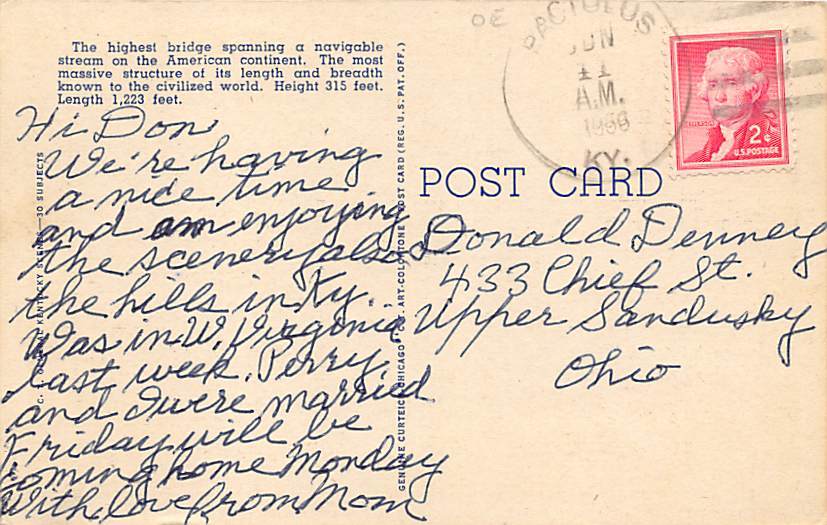 The highest bridge spanning a navigable
stream on the American continent. The most
massive structure of its length and breadth
known to the civilized world. Height 315 feet.
Length 1,223 feet.
Hi Don
We're having
a nice time
and am enjoying
the scenery also
the hills in Ky.
Was in W. Virginia
last week. Perry
and I were married
Friday will be
coming home Monday
With love from Mom
KENTUCKY SCENES—30 SUBJECTS
GENUINE CURTEICH-CHICAGO "C.T. ART-COLORTONE" POST CARD (REG. U.S. PAT. OFF.)
PACTOLUS
JUN
11
A.M.
KY.
2¢
U.S. POSTAGE
POST CARD
Donald Denney
433 Chief St.
Upper Sandusky
Ohio